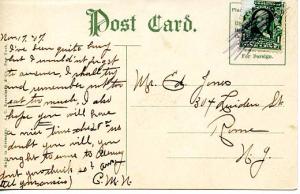 Post Card.
Nov. 17. '07.
I've been quite busy
but I wouldn't forget
to answer, I shall try
and remember not to
eat too much. I also
hope you will have
a nice time
doubt you will, you
ought to come to
C.M.N.
Mr. Ed Jones
304 Leiden St.
Rome
N.Y.
For Foreign.